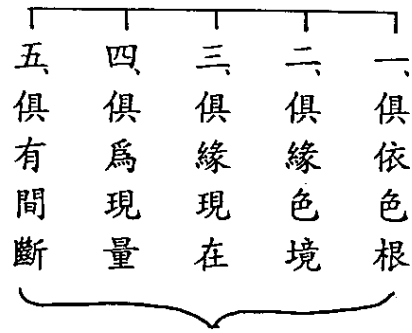 一、俱依色根
二、俱緣色境
三、俱緣現在
四、俱爲現量
五、俱有間斷